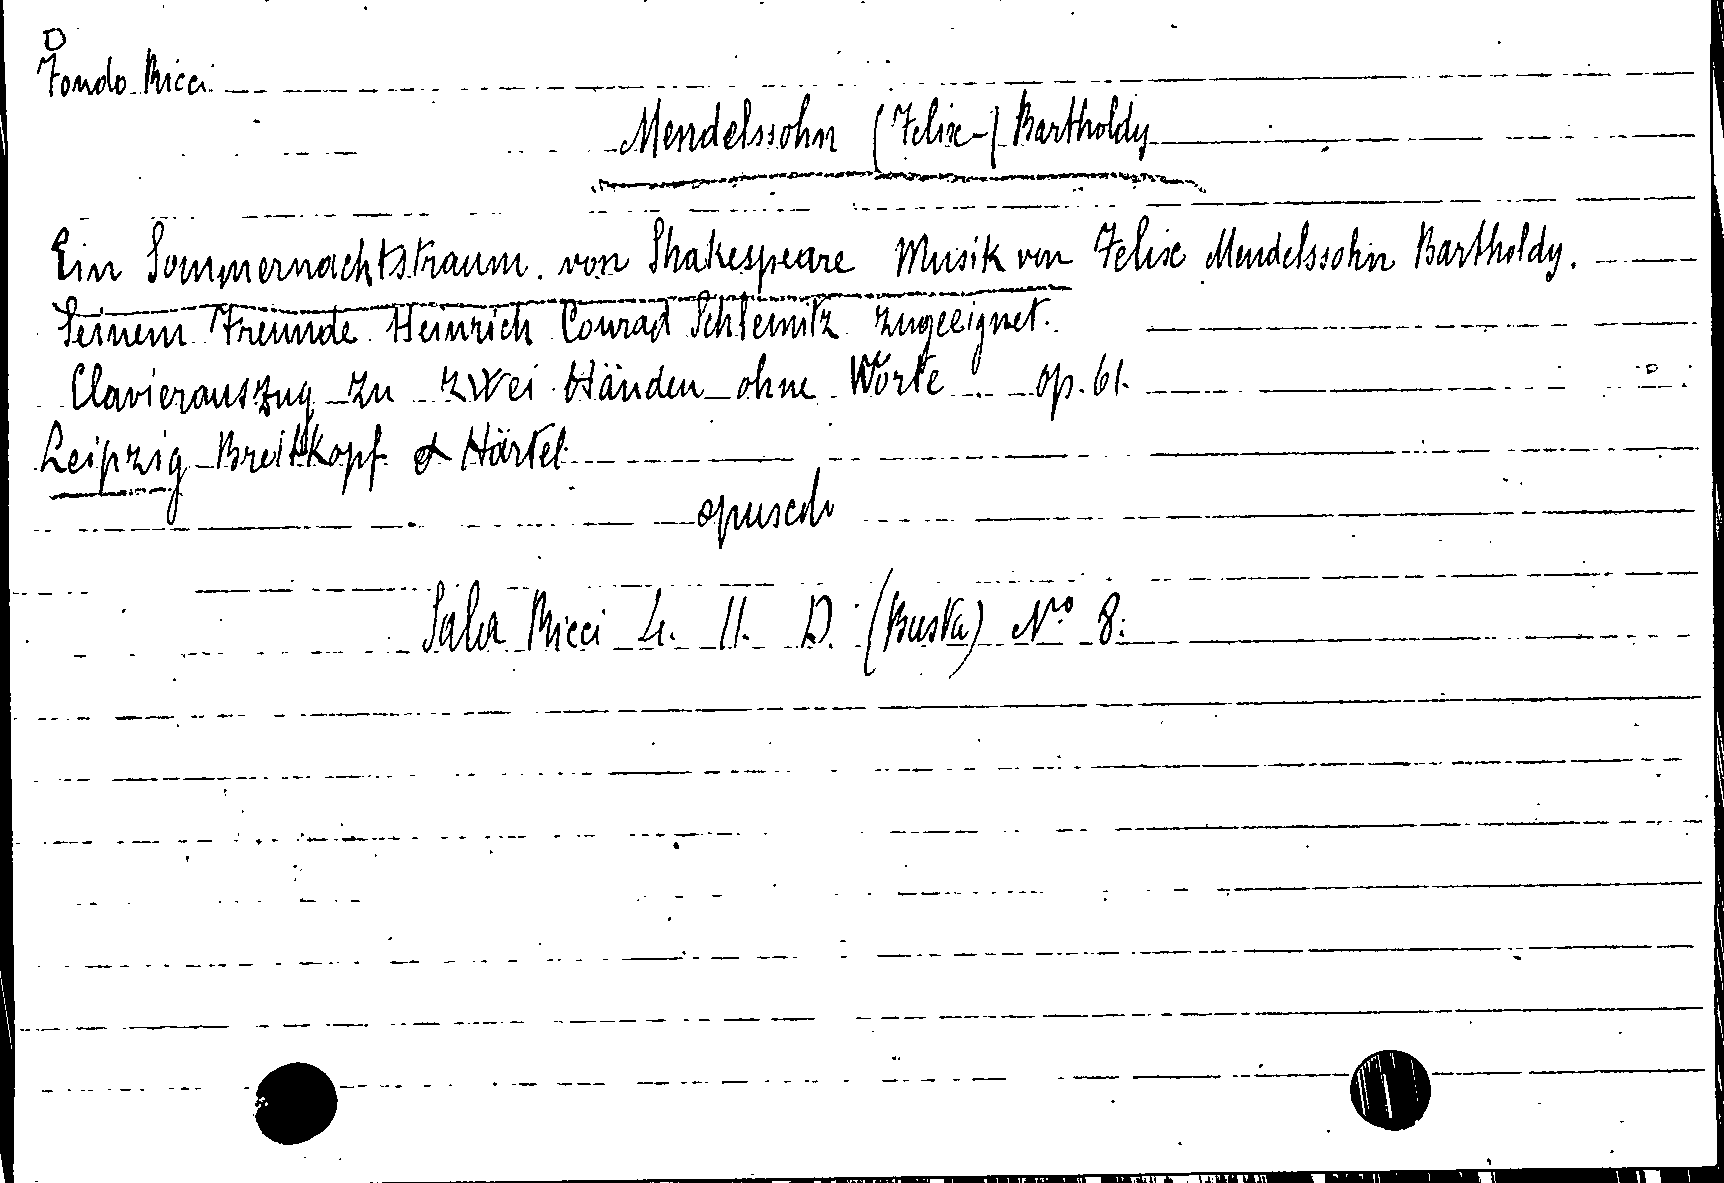 D
Fondo Ricci
Mendelssohn (Felix-) Bartholdy
Ein Sommernachtstraum. von Shakespeare Musik von Felix Mendelssohn Bartholdy.
Seinem Freunde Heinrich Conrad Schleinitz zugeeignet.
Clavierauszug zu zwei Händen ohne Worte. op. 61.
Leipzig Breitkopf & Härtel
opuscolo
Sala Ricci 4. 11. D. (Busta) Nº 8.